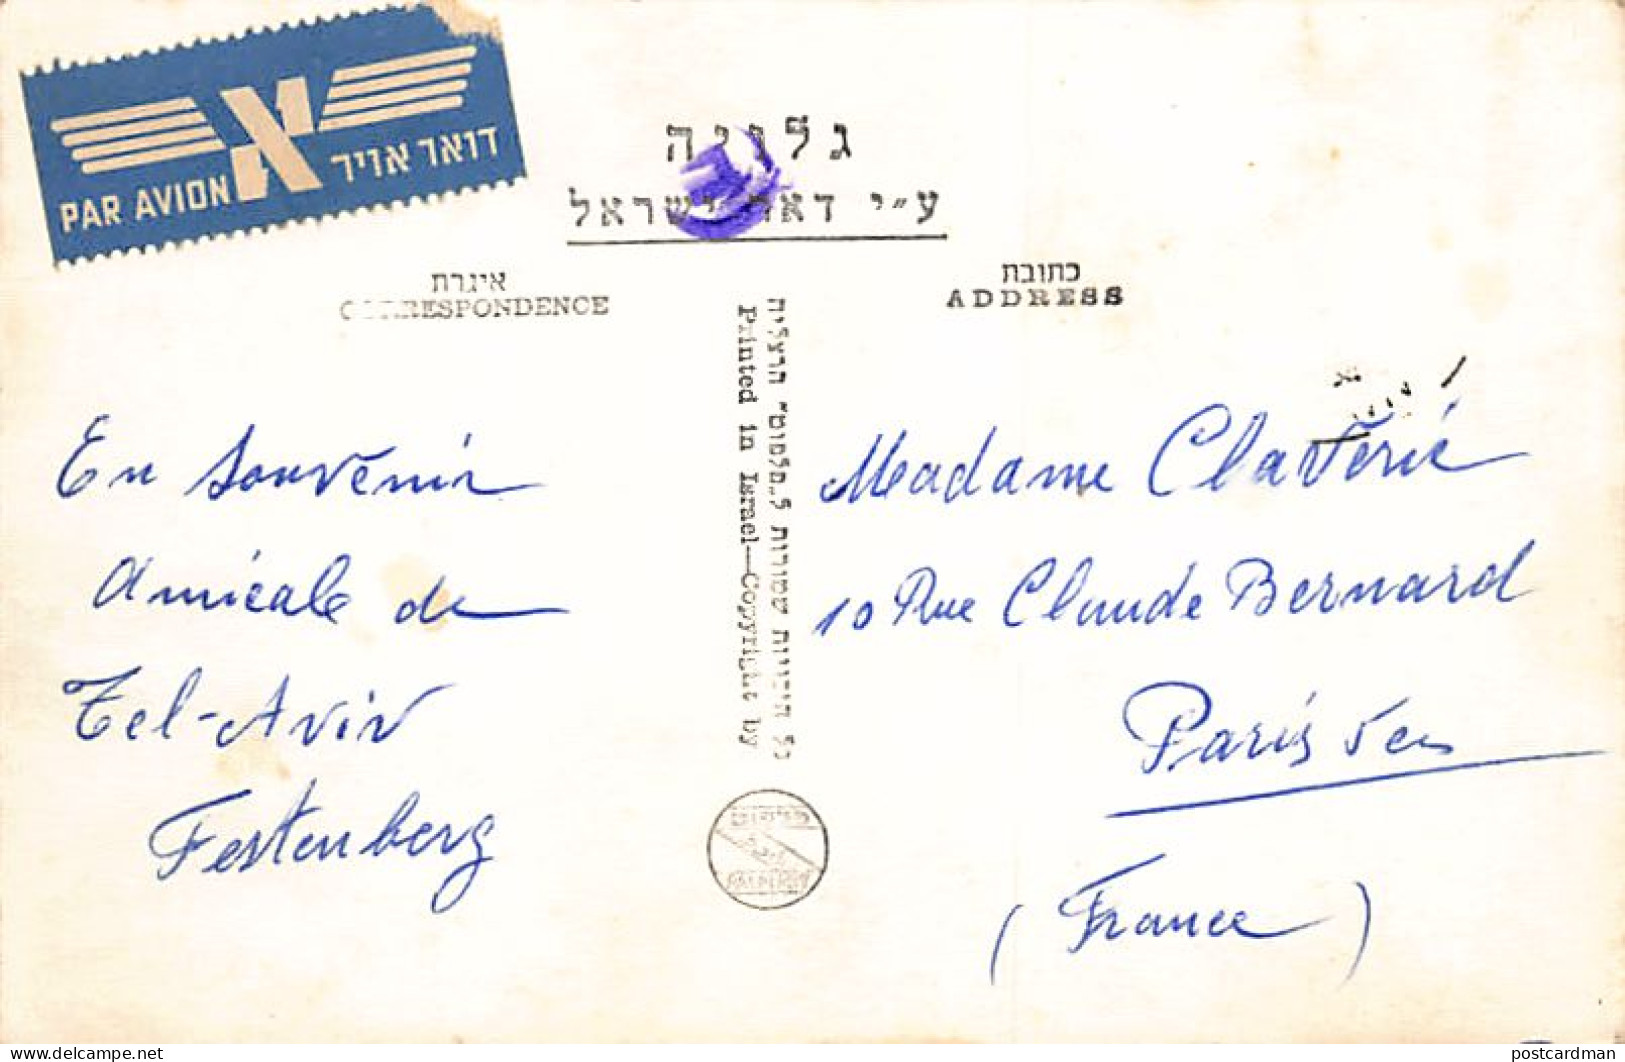 PAR AVION דואר אויר
גלויה
ע״י דאר ישראל
איגרת
CORRESPONDENCE
כתובת
ADDRESS
כל הזכויות שמורות ל„פלפוט" הרצליה
Printed in Israel—Copyright by
PALPHOT
En souvenir
amicale de
Tel-Aviv
Festenberg
Madame Claverie
10 Rue Claude Bernard
Paris Vem
(France)
postcardman